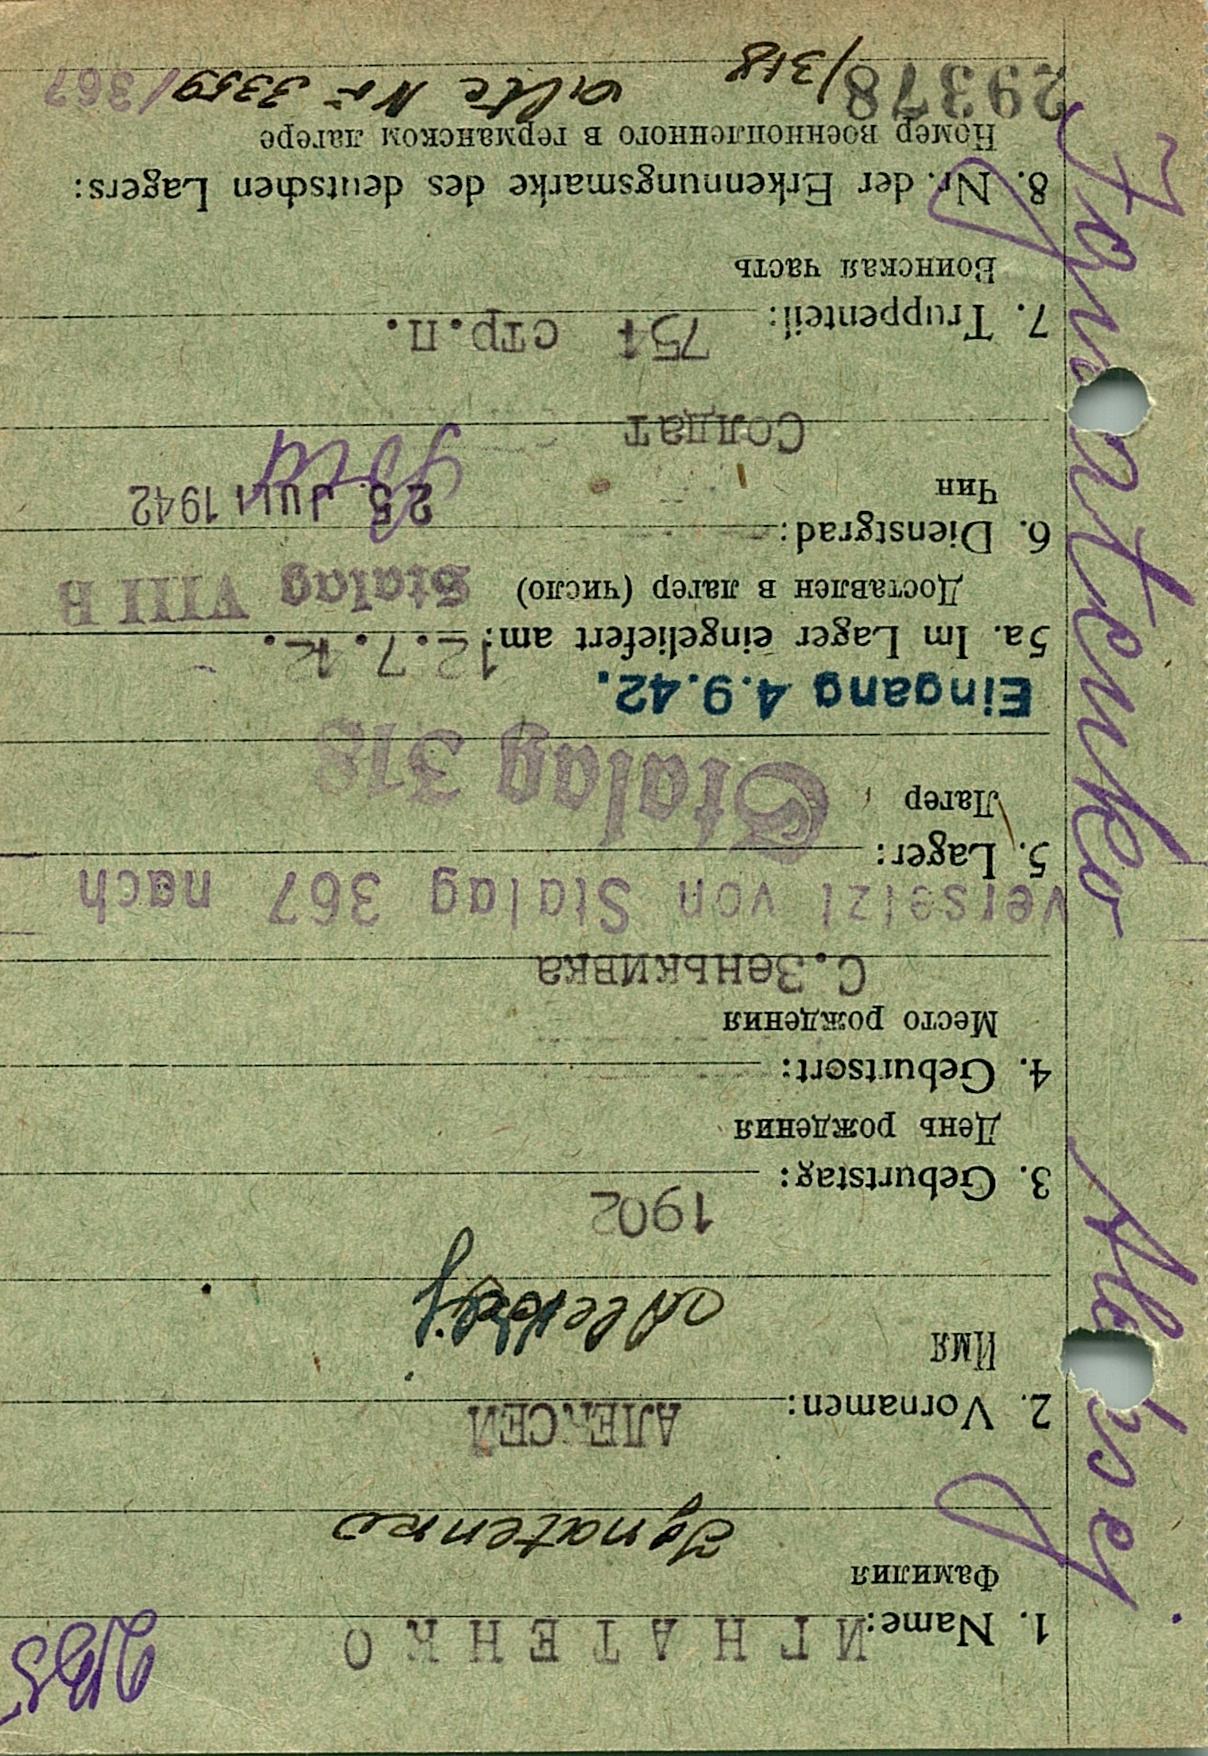 1. Name: ИГНАТЕНКО
Фамилия
Ignatenko
2. Vornamen: АЛЕКСЕЙ
Имя
Aleksej
1902
3. Geburtstag:
День рождения
4. Geburtsort:
Место рождения
С.Зенькивка
versetzt von Stalag 367 nach
5. Lager:
Лагер
Stalag 318
Eingang 4.9.42.
5a. Im Lager eingeliefert am: 12.7.42.
Доставлен в лагер (число)
Stalag VIII B
6. Dienstgrad:
25. Juli 1942
Чин
Солдат
7. Truppenteil: 751 стр.п.
Воинская часть
8. Nr. der Erkennungsmarke des deutschen Lagers:
Номер военнопленного в германском лагере
29378/318 alte Nr 3359/367
Ignatenko Aleksej